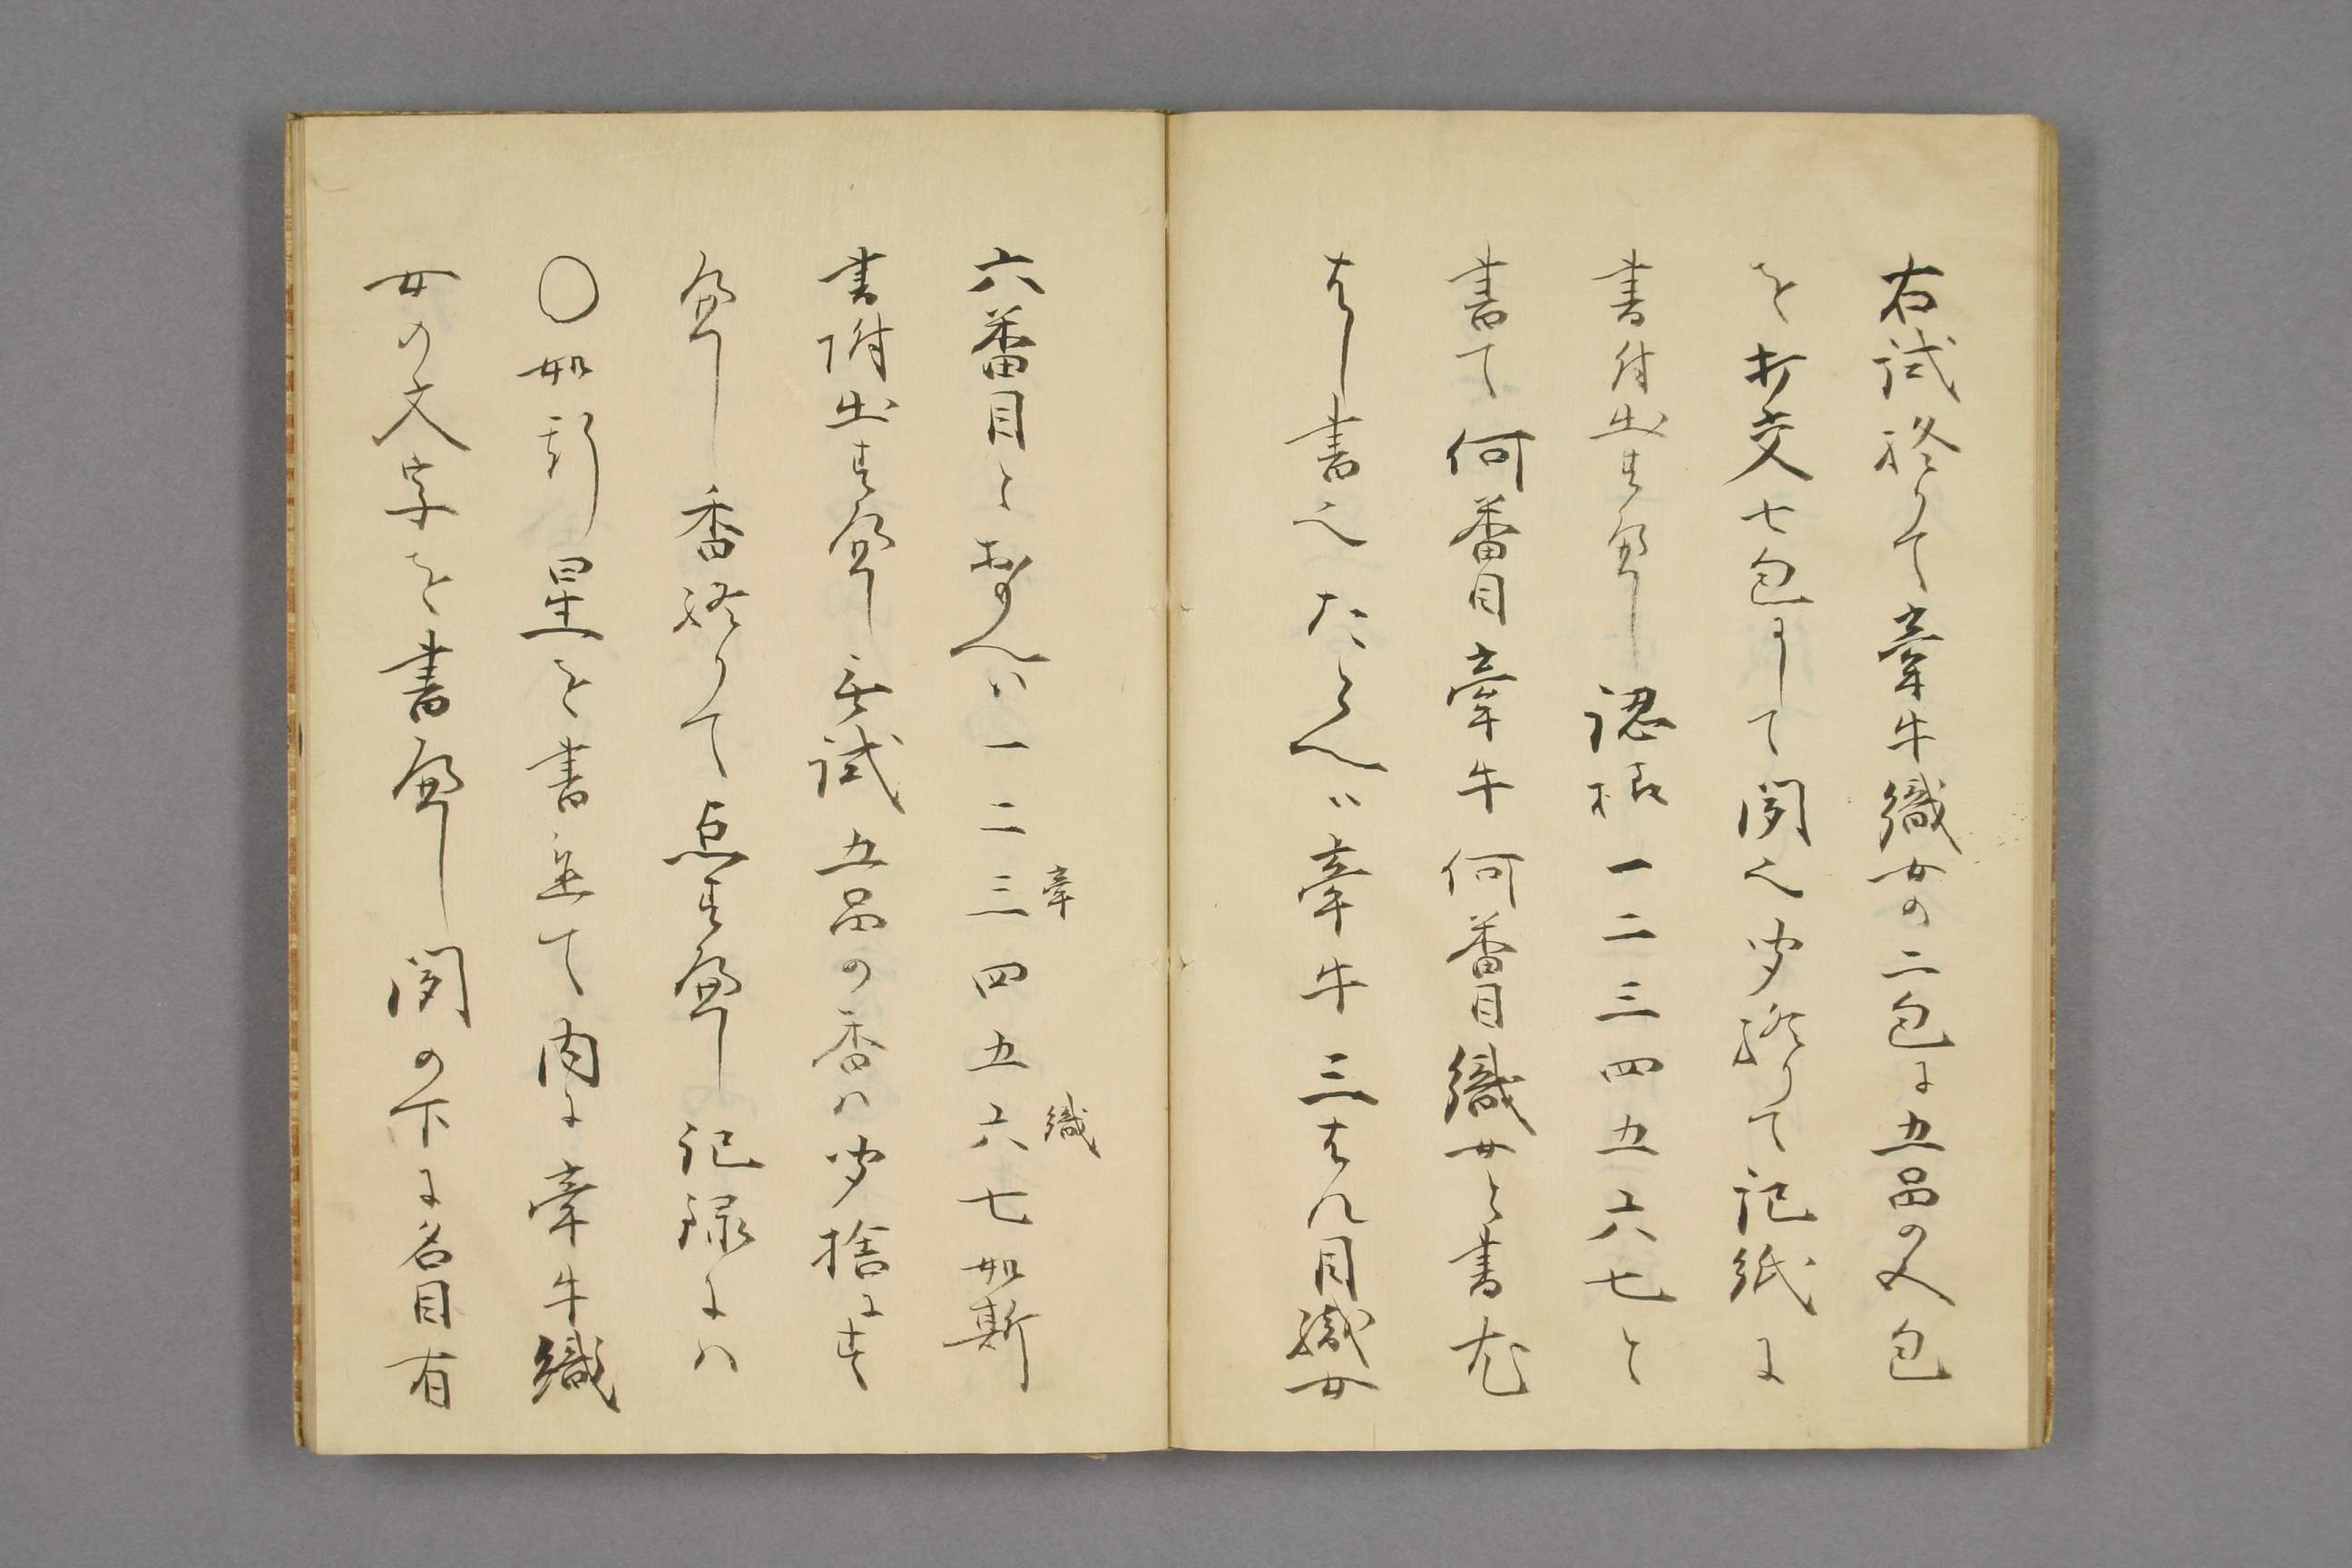 右試終りて牽牛織女の二包に五品の入包
を打交七包にして聞之聞終りて記紙に
書付出す可し認様一二三四五六七と
書て何番目牽牛何番目織女と書
書之たとへハ牽牛三 目織女
牽 織
六番目とおもへハ一二三四五六七如斯
書附出す可し無試五品の香ハ聞捨にす
可し香終りて点す可し記録にハ
〇如斯星を書並て内に牽牛織
女の文字を書可し聞の下に名目有